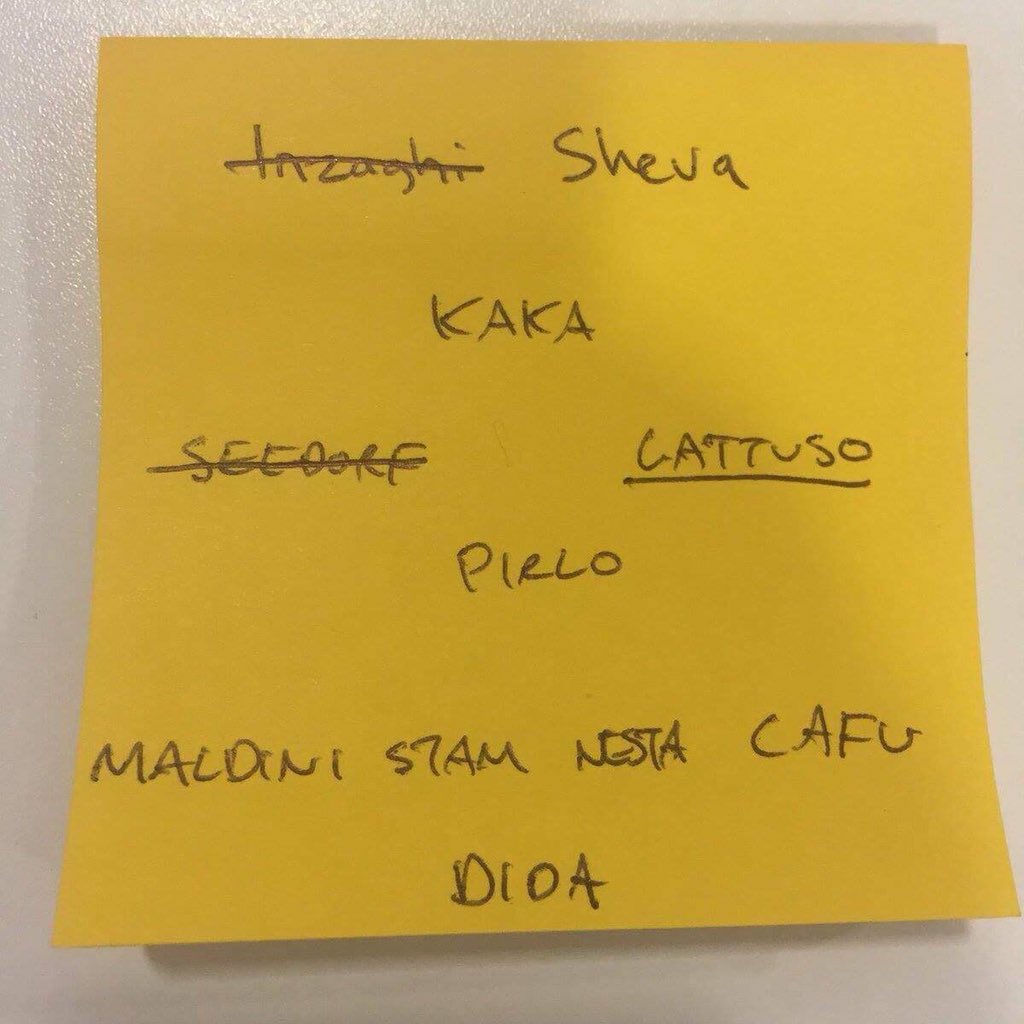 Inzaghi Sheva
KAKA
SEEDORF GATTUSO
PIRLO
MALDINI STAM NESTA CAFU
DIDA